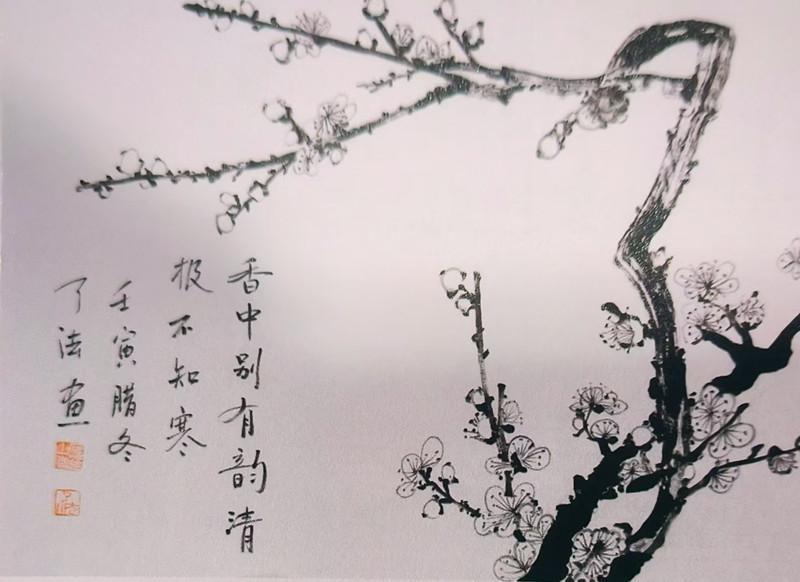 香中别有韵清
极不知寒
壬寅腊冬
了法画